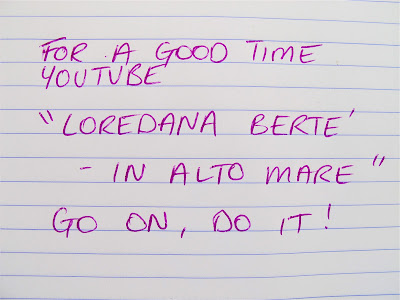 FOR A GOOD TIME
YOUTUBE
"LOREDANA BERTE'
- IN ALTO MARE"
GO ON, DO IT!